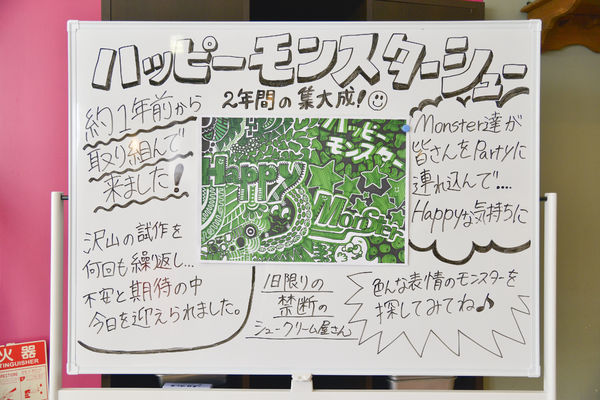 ハッピーモンスターシュー
2年間の集大成!
約1年前から
取り組んで
来ました!
ハッピー
モンスター
Happy
Monster
Monster達が
皆さんをPartyに
連れ込んで....
Happyな気持ちに
沢山の試作を
何回も繰り返し...
不安と期待の中
今日を迎えられました。
1日限りの
禁断の
シュークリーム屋さん
色んな表情のモンスターを
探してみてね♪
火器
TINGUISHER